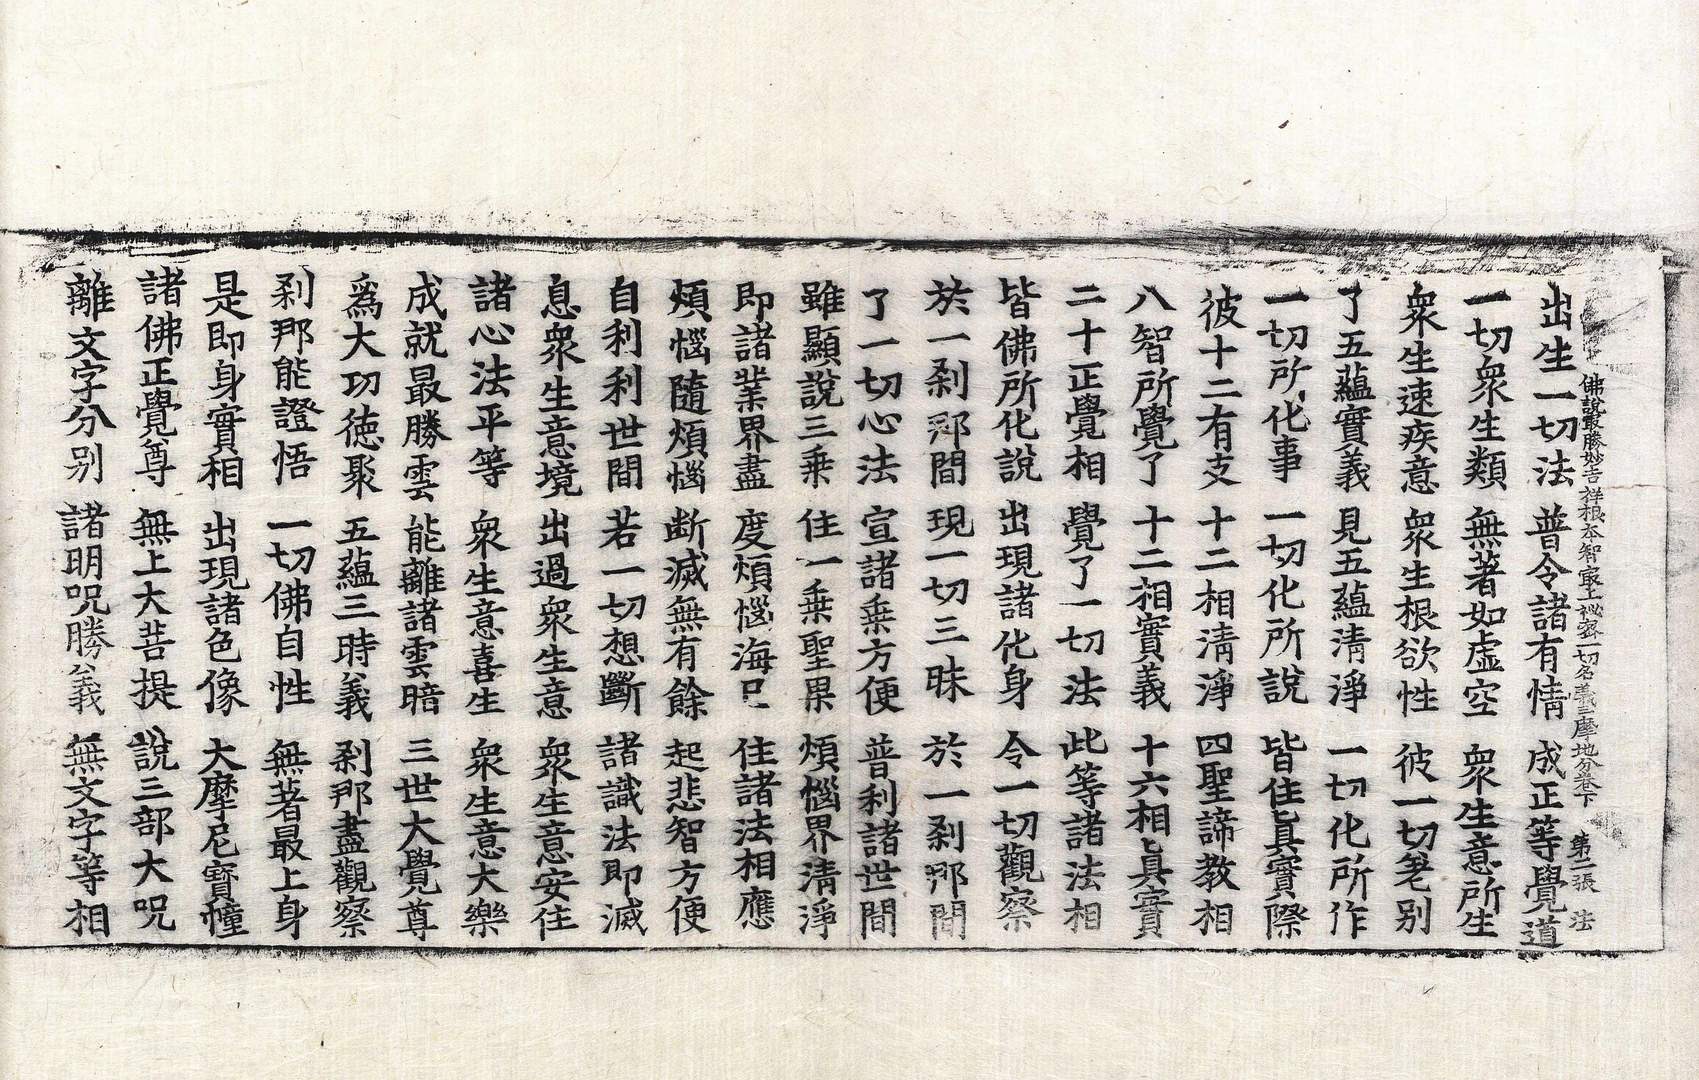 佛說最勝妙吉祥根本智最上祕密一切名義三摩地分卷下 第二張 法
出生一切法 普令諸有情 成正等覺道
一切衆生類 無著如虛空 衆生意所生
衆生速疾意 衆生根欲性 彼一切差別
了五蘊實義 見五蘊清淨 一切化所作
一切所化事 一切化所說 皆住眞實際
彼十二有支 十二相清淨 四聖諦教相
八智所覺了 十二相實義 十六相眞實
二十正覺相 覺了一切法 此等諸法相
皆佛所化說 出現諸化身 令一切觀察
於一刹那間 現一切三昧 於一刹那間
了一切心法 宣諸乗方便 普利諸世間
雖顯說三乗 住一乗聖果 煩惱界清淨
即諸業界盡 度煩惱海已 住諸法相應
煩惱隨煩惱 断滅無有餘 起悲智方便
自利利世間 若一切想斷 諸識法即滅
息衆生意境 出過衆生意 衆生意安住
諸心法平等 衆生意喜生 衆生意大樂
成就最勝雲 能離諸雲暗 三世大覺尊
爲大功徳聚 五蘊三時義 刹那盡觀察
刹那能證悟 一切佛自性 無著最上身
是即身實相 出現諸色像 大摩尼寶幢
諸佛正覺尊 無上大菩提 說三部大呪
離文字分別 諸明呪勝義 無文字等相